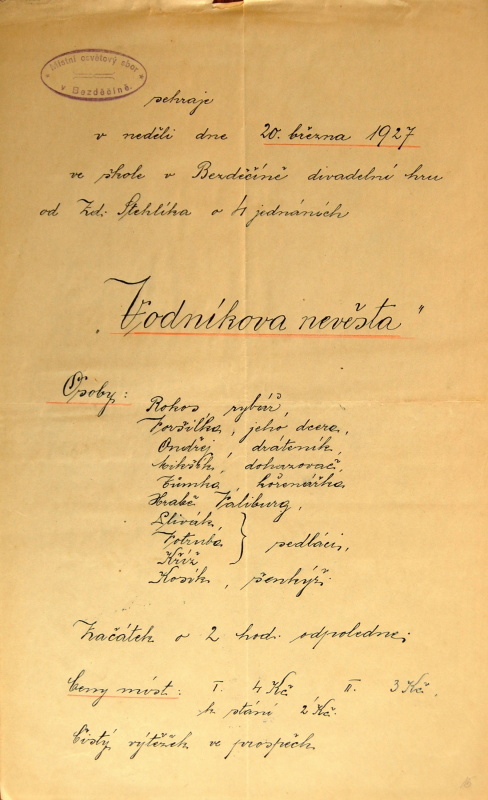 Místní osvětový sbor
v Bezděčíně.
sehraje
v neděli dne 20. března 1927
ve škole v Bezděčíně divadelní hru
od Zd. Štehlíka o 4 jednáních
„Vodníkova nevěsta"
Osoby:
Rokos, rybář,
Voršilka, jeho dcera,
Ondřej, drateník,
dohazovač,
kořenářka
Hrabě Valiburg,
Slivák,
Votruba } sedláci,
Kříž
Kosík, šenkýř.
Začátek o 2 hod. odpoledne;
Ceny míst: I. 4 Kč II. 3 Kč.
k stání 2 Kč.
Čistý výtěžek ve prospěch